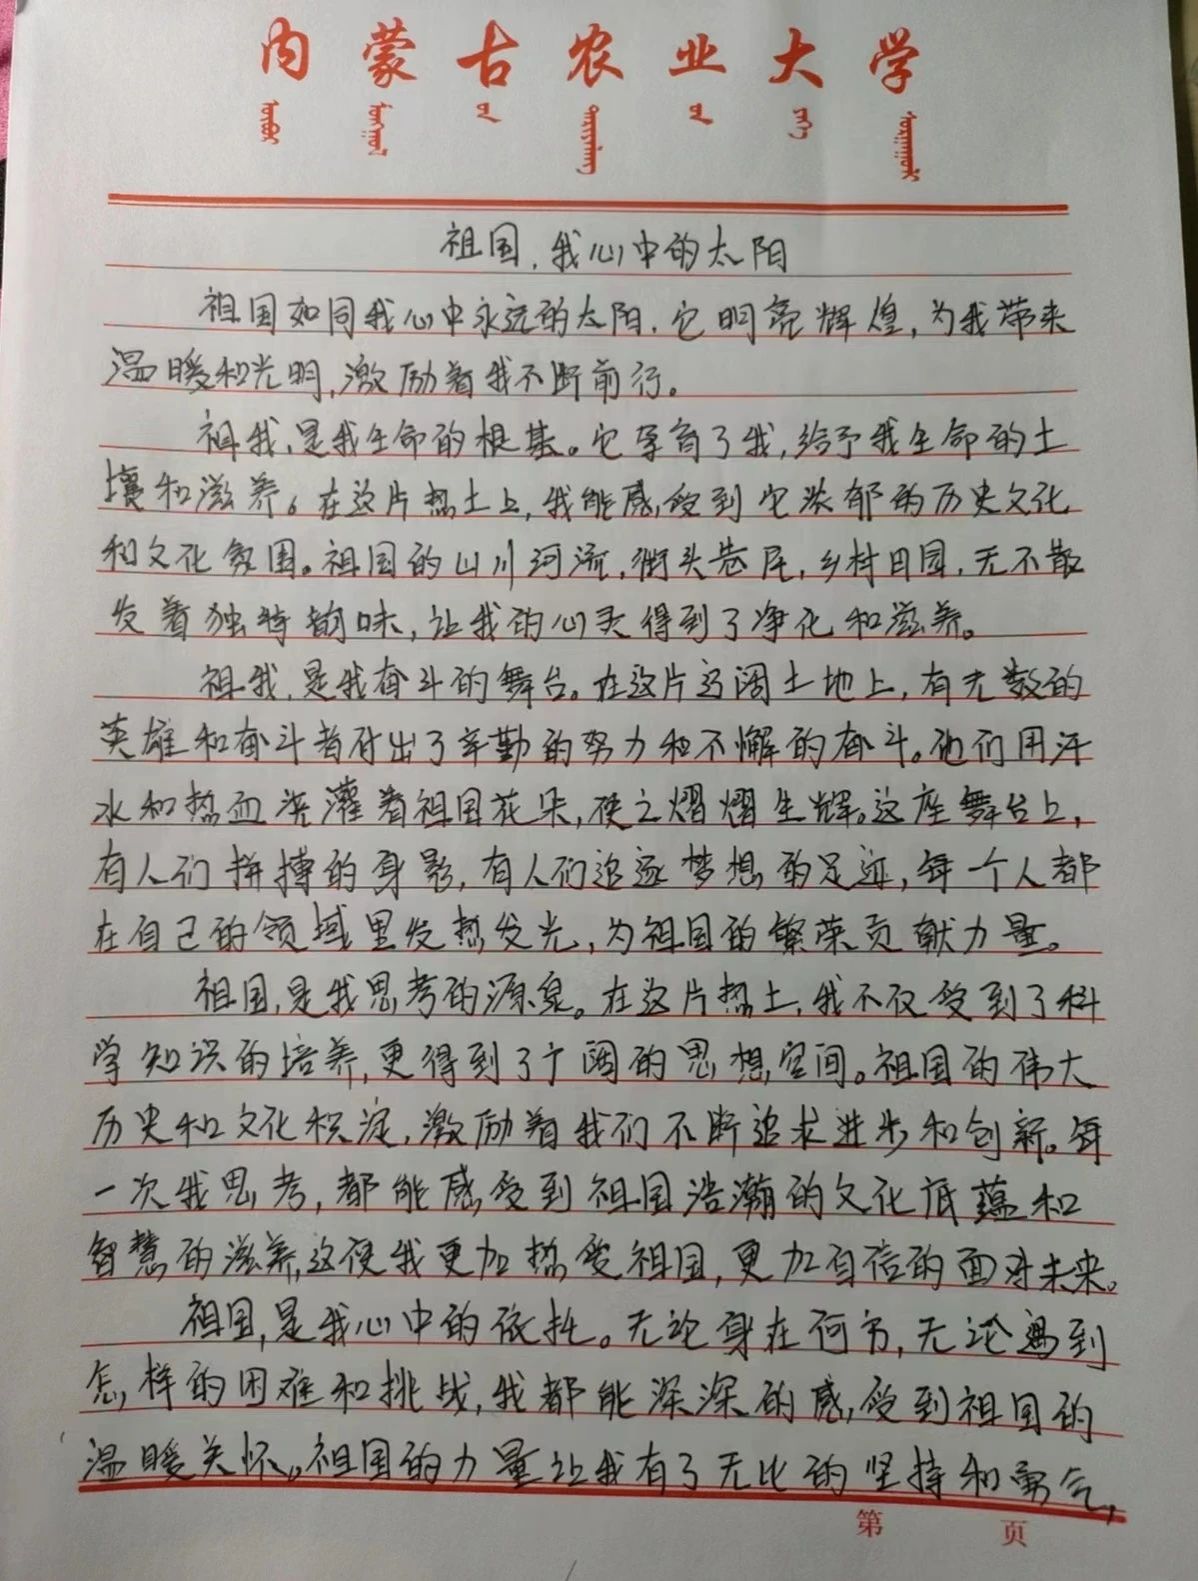 内蒙古农业大学
祖国,我心中的太阳
祖国如同我心中永远的太阳,它明亮辉煌,为我带来
温暖和光明,激励着我不断前行。
祖我,是我生命的根基。它孕育了我,给予我生命的土
壤和滋养。在这片热土上,我能感受到它浓郁的历史文化
和文化氛围。祖国的山川河流,街头巷尾,乡村田园,无不散
发着独特韵味,让我的心灵得到了净化和滋养。
祖我,是我奋斗的舞台。在这片辽阔土地上,有无数的
英雄和奋斗者付出了辛勤的努力和不懈的奋斗。他们用汗
水和热血浇灌着祖国花朵,使之熠熠生辉。这座舞台上,
有人们拼搏的身影,有人们追逐梦想的足迹,每一个人都
在自己的领域里发热发光,为祖国的繁荣贡献力量。
祖国,是我思考的源泉。在这片热土,我不仅受到了科
学知识的培养,更得到了广阔的思想空间。祖国的伟大
历史和文化积淀,激励着我们不断追求进步和创新。每
一次我思考,都能感受到祖国浩瀚的文化底蕴和
智慧的滋养,这使我更加热爱祖国,更加自信的面对未来。
祖国,是我心中的依托。无论身在何方,无论遇到
怎样的困难和挑战,我都能深深的感受到祖国的
温暖关怀。祖国的力量让我有了无比的坚持和勇气,
第 页